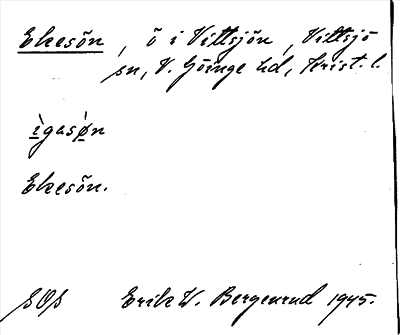 Ekesön, ö i Vittsjön, Vittsjö
sn, V. Göinge hd, Krist. l.
ìgasö̀n
Ekesön.
SOS Erik W. Bergenrud 1945.